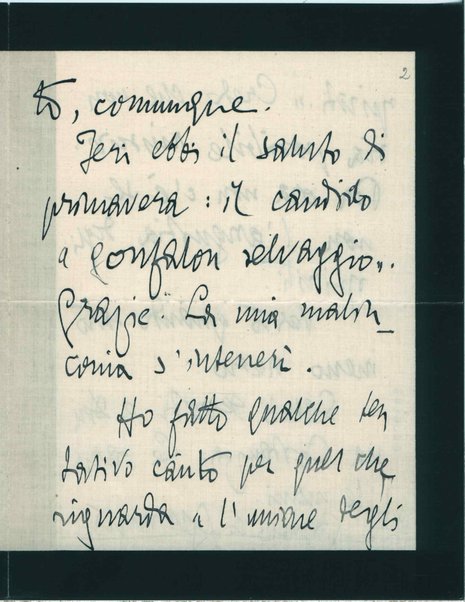 2
to, comunque.
Jeri ebbi il saluto di
primavera: il candido
"gonfalon selvaggio".
Grazie. La mia malin_
conia s'intenerì.
Ho fatto qualche ten
tativo cauto per quel che
riguarda "l'unione degli